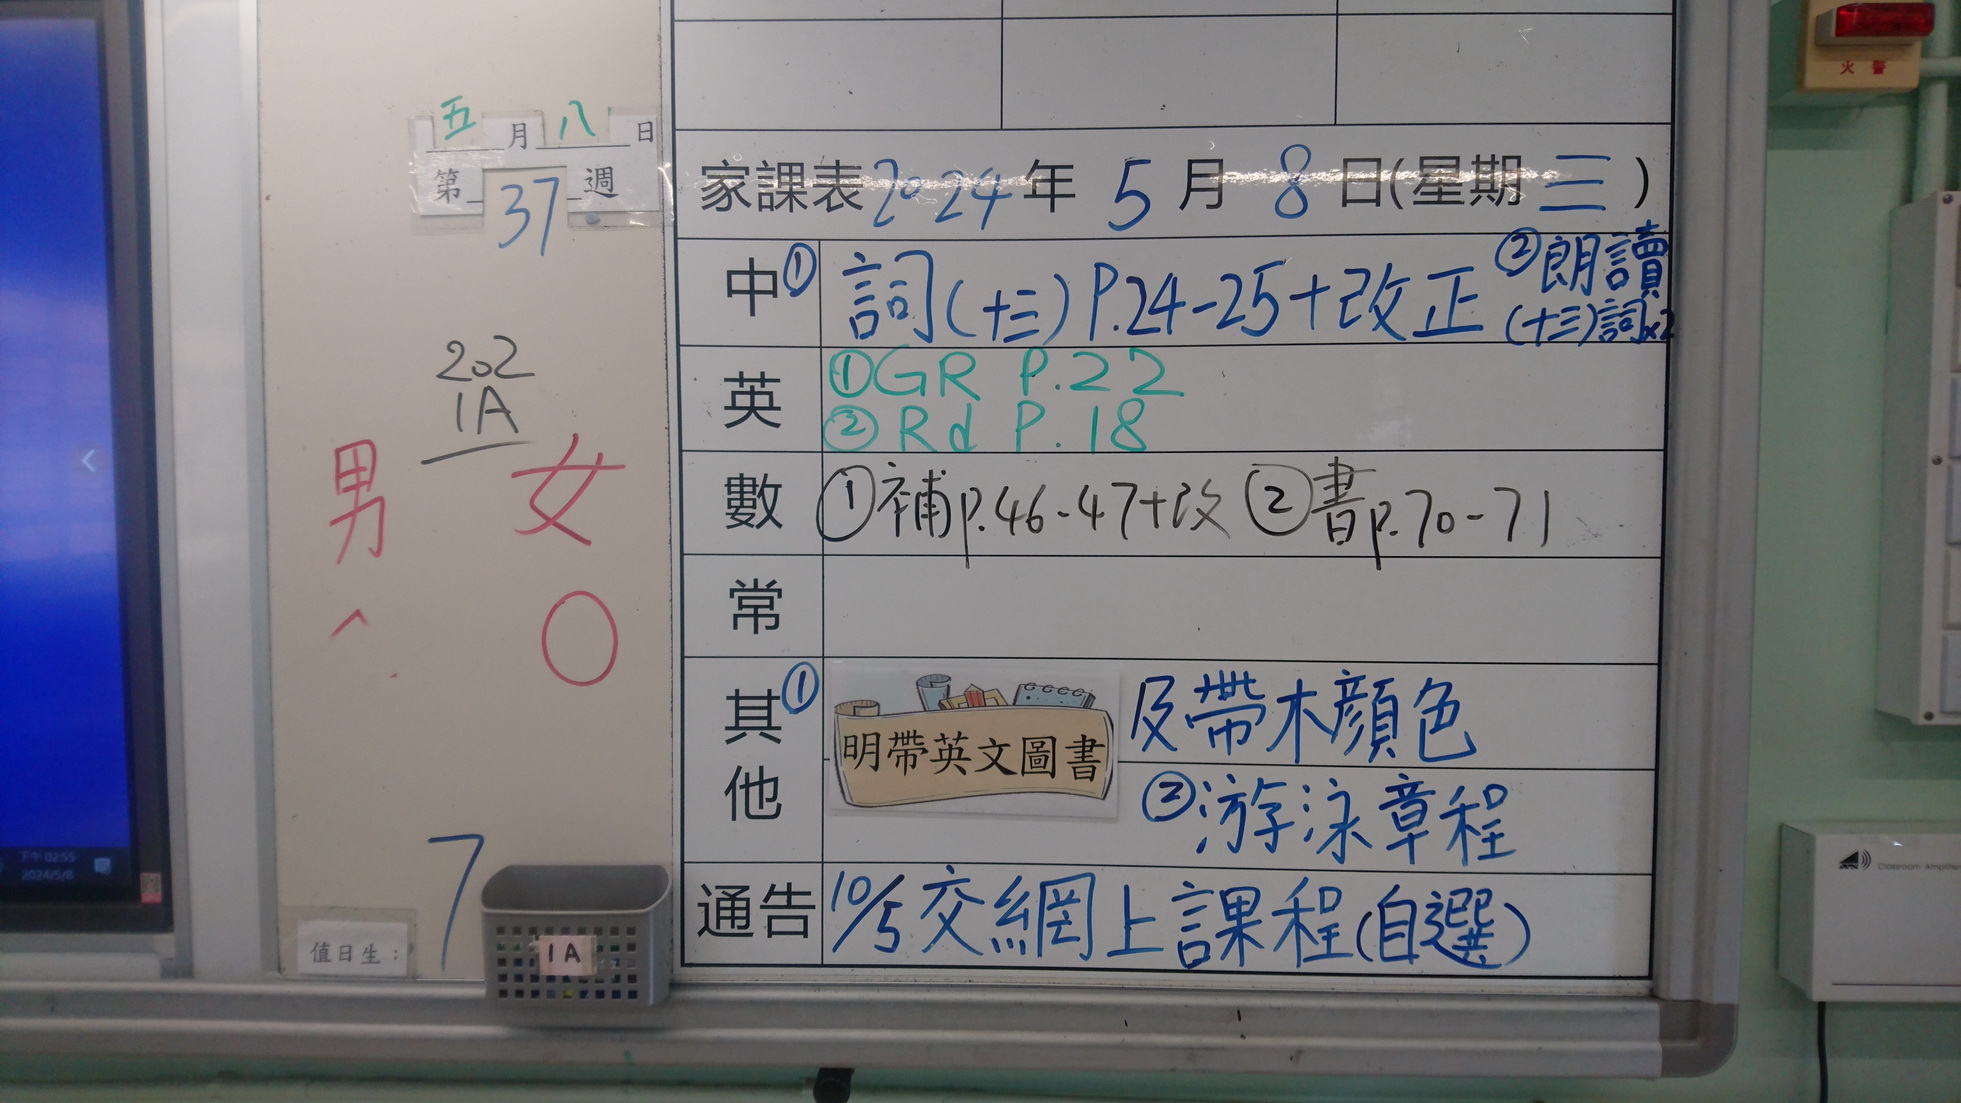 五月八日
第37週
202
1A
男 女
值日生：7
1A
下午 02:55
2024/5/8
家課表2024年5月8日(星期三)
中 ①詞(十三)P.24-25+改正 ②朗讀
(十三)詞x2
英 ①GR P.22
②Rd P.18
數 ①補p.46-47+改 ②書p.70-71
常
其他 ①明帶英文圖書及帶木顏色
②游泳章程
通告 10/5交網上課程(自選)
火警
Classroom Amplifier